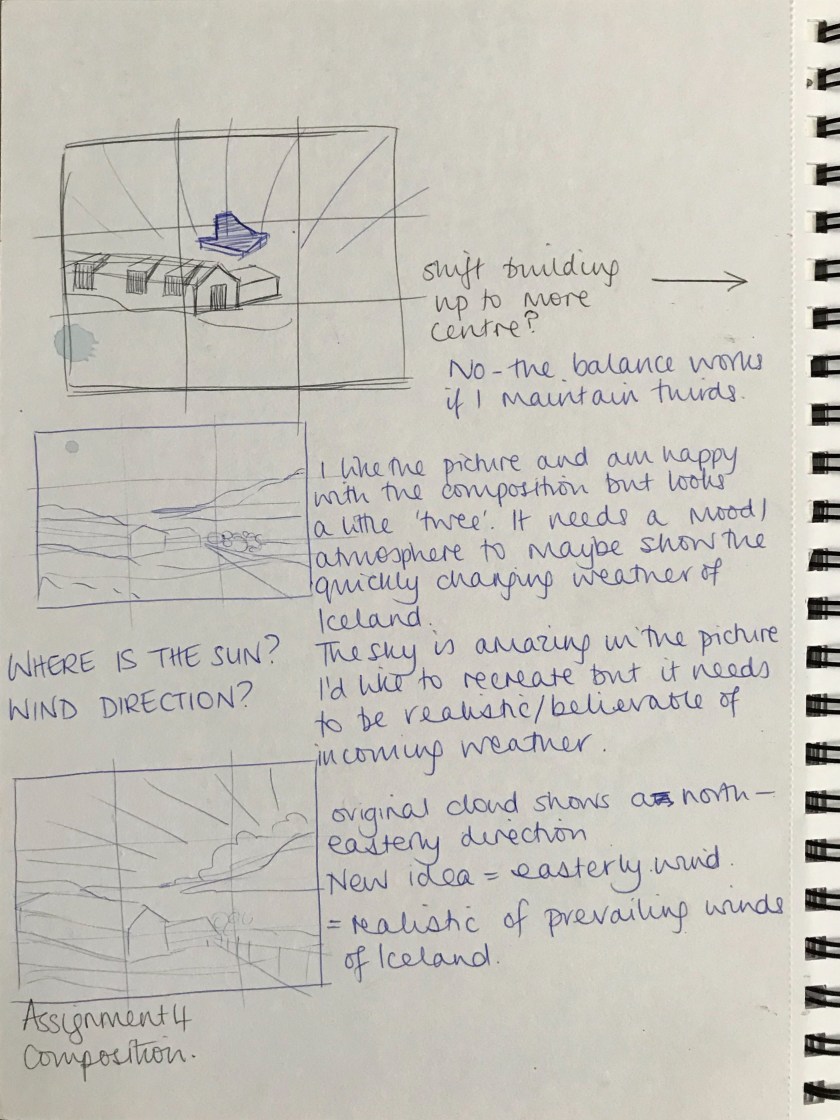 shift building
up to more
centre?
No - the balance works
if I maintain thirds.
I like the picture and am happy
with the composition but looks
a little 'twee'. It needs a mood/
atmosphere to maybe show the
quickly changing weather of
Iceland.
The sky is amazing in the picture
I'd like to recreate but it needs
to be realistic/believable of
incoming weather.
WHERE IS THE SUN?
WIND DIRECTION?
original cloud shows a north-
easterly direction
New idea = easterly wind.
= realistic of prevailing winds
of Iceland.
Assignment 4
Composition.